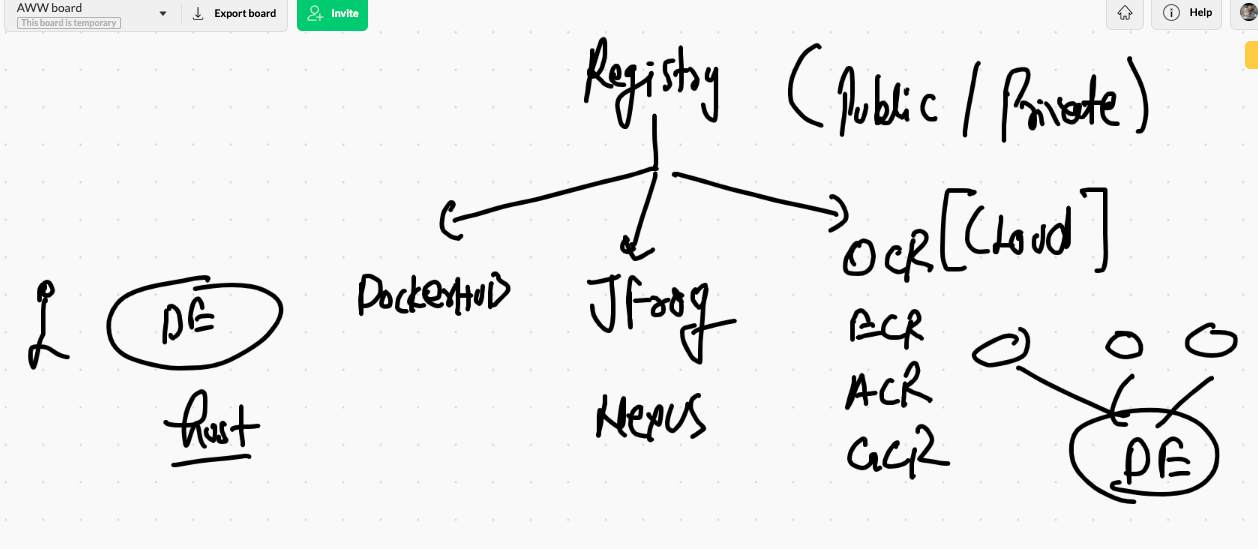 AWW board
This board is temporary
Export board
Invite
Help
Registry (Public / Private)
DockerHub
JFrog
Nexus
OCR [Cloud]
ECR
ACR
GCR
DE
host
DE